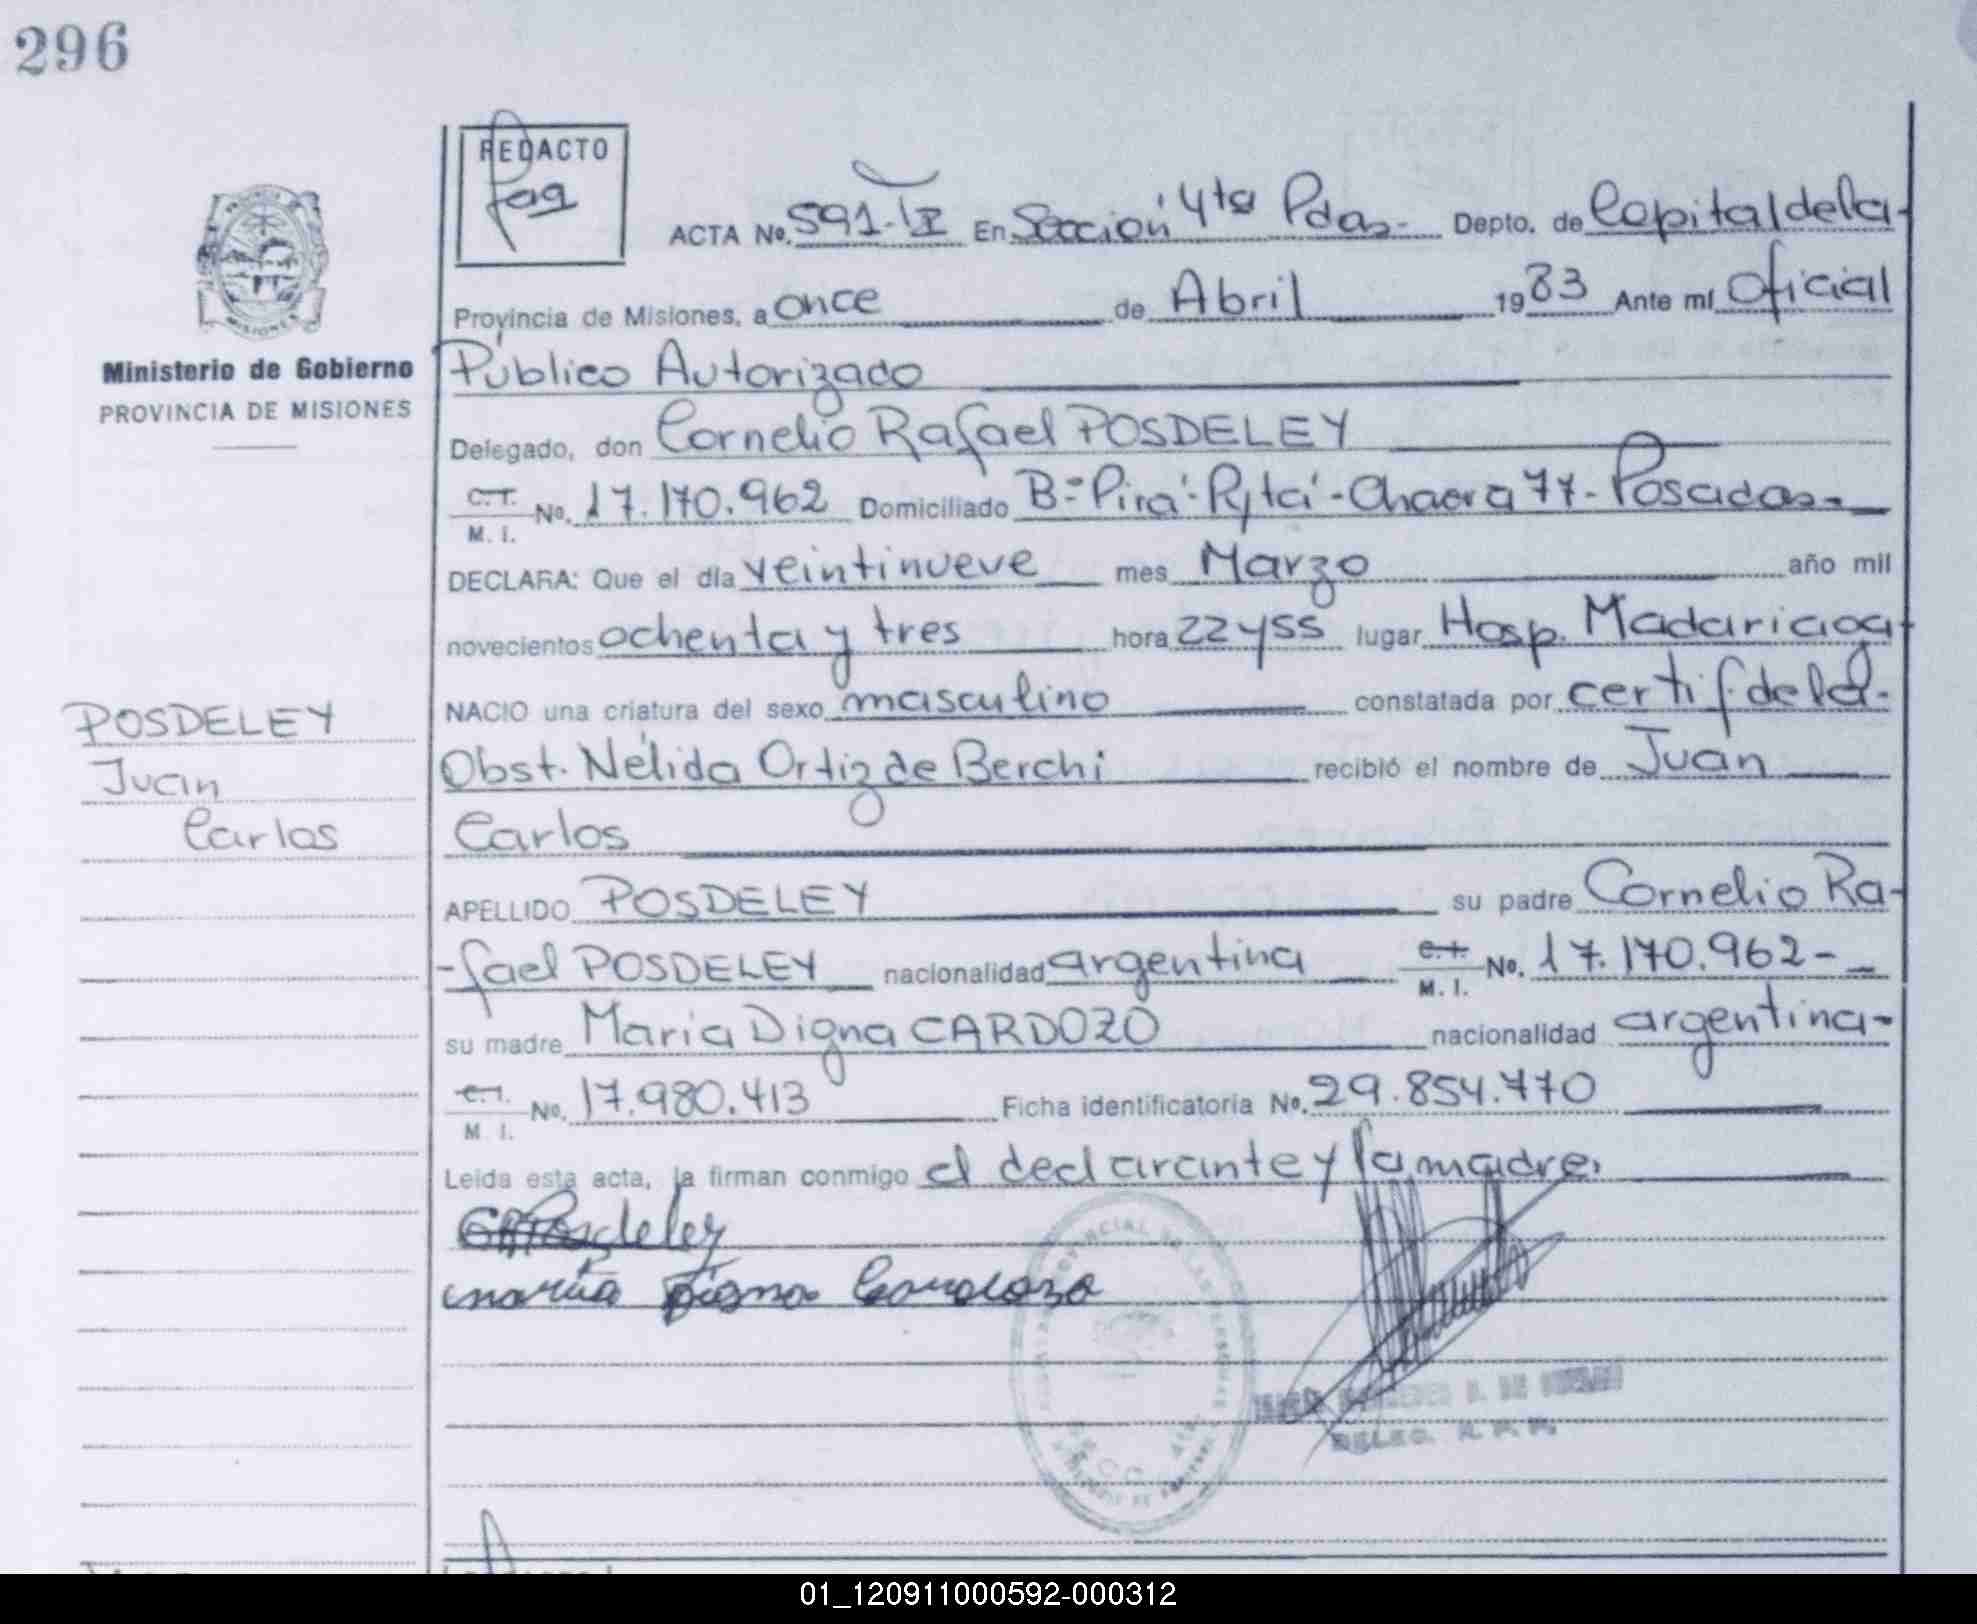 296
REDACTO
ACTA No. 591-II En Sección 4ta Pdas- Depto. de Capital de la-
Provincia de Misiones, a once de Abril 1983 Ante mí Oficial
Ministerio de Gobierno
PROVINCIA DE MISIONES
Público Autorizado
Delegado, don Cornelio Rafael POSDELEY
C.I. M. I. No. 17.170.962 Domiciliado B=Pirá-Pytá-Chacra 77-Posadas-
DECLARA: Que el día veintinueve mes Marzo año mil
novecientos ochenta y tres hora 22 y 55 lugar Hosp. Madariaga
NACIO una criatura del sexo masculino constatada por certif de la-
Obst. Nélida Ortiz de Berchi recibió el nombre de Juan
Carlos
POSDELEY
Juan
Carlos
APELLIDO POSDELEY su padre Cornelio Ra-
-fael POSDELEY nacionalidad argentina C.I. M. I. No. 17.170.962-
su madre Maria Digna CARDOZO nacionalidad argentina-
C.I. M. I. No. 17.980.413 Ficha identificatoria No. 29.854.770
Leída esta acta, la firman conmigo el declarante y la madre.
Posdeley
maria Digna Cardozo
DELEG. R. P. P.
01_120911000592-000312